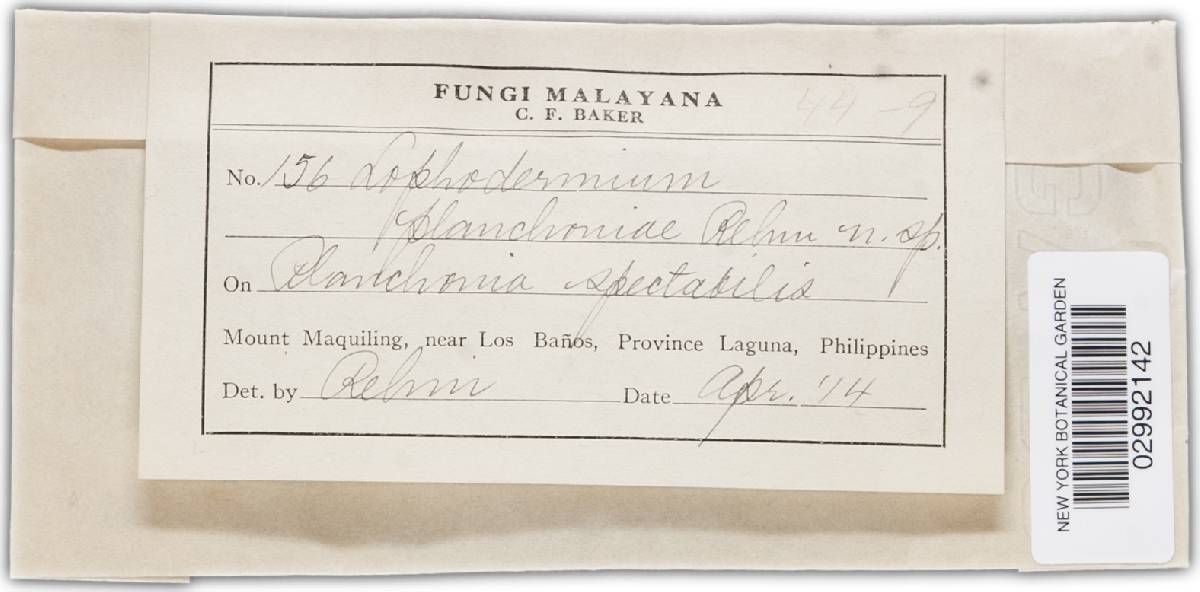 FUNGI MALAYANA
C. F. BAKER
44-9
No. 156 Lophodermium
planchoniae Rehm n. sp.
On Planchonia spectabilis
Mount Maquiling, near Los Baños, Province Laguna, Philippines
Det. by Rehm Date Apr. '14
NEW YORK BOTANICAL GARDEN
02992142